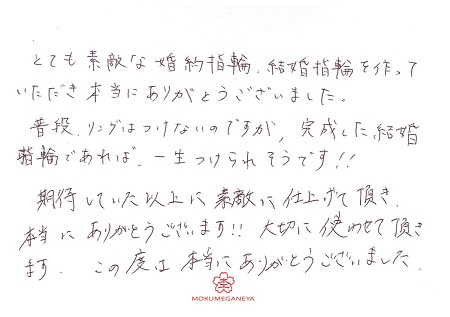 とても素敵な婚約指輪、結婚指輪を作って
いただき本当にありがとうございました。
普段、リングはつけないのですが、完成した結婚
指輪であれば、一生つけられそうです!!
期待していた以上に素敵に仕上げて頂き、
本当にありがとうございます!! 大切に使わせて頂き
ます。この度は本当にありがとうございました。
MOKUMEGANEYA